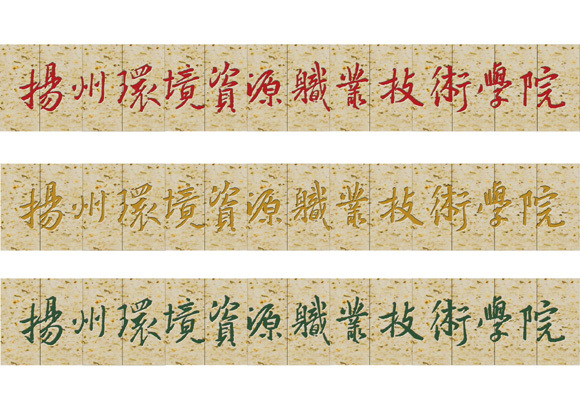 揚州環境資源職叢技術學院
揚州環境資源職叢技術學院
揚州環境資源職叢技術學院